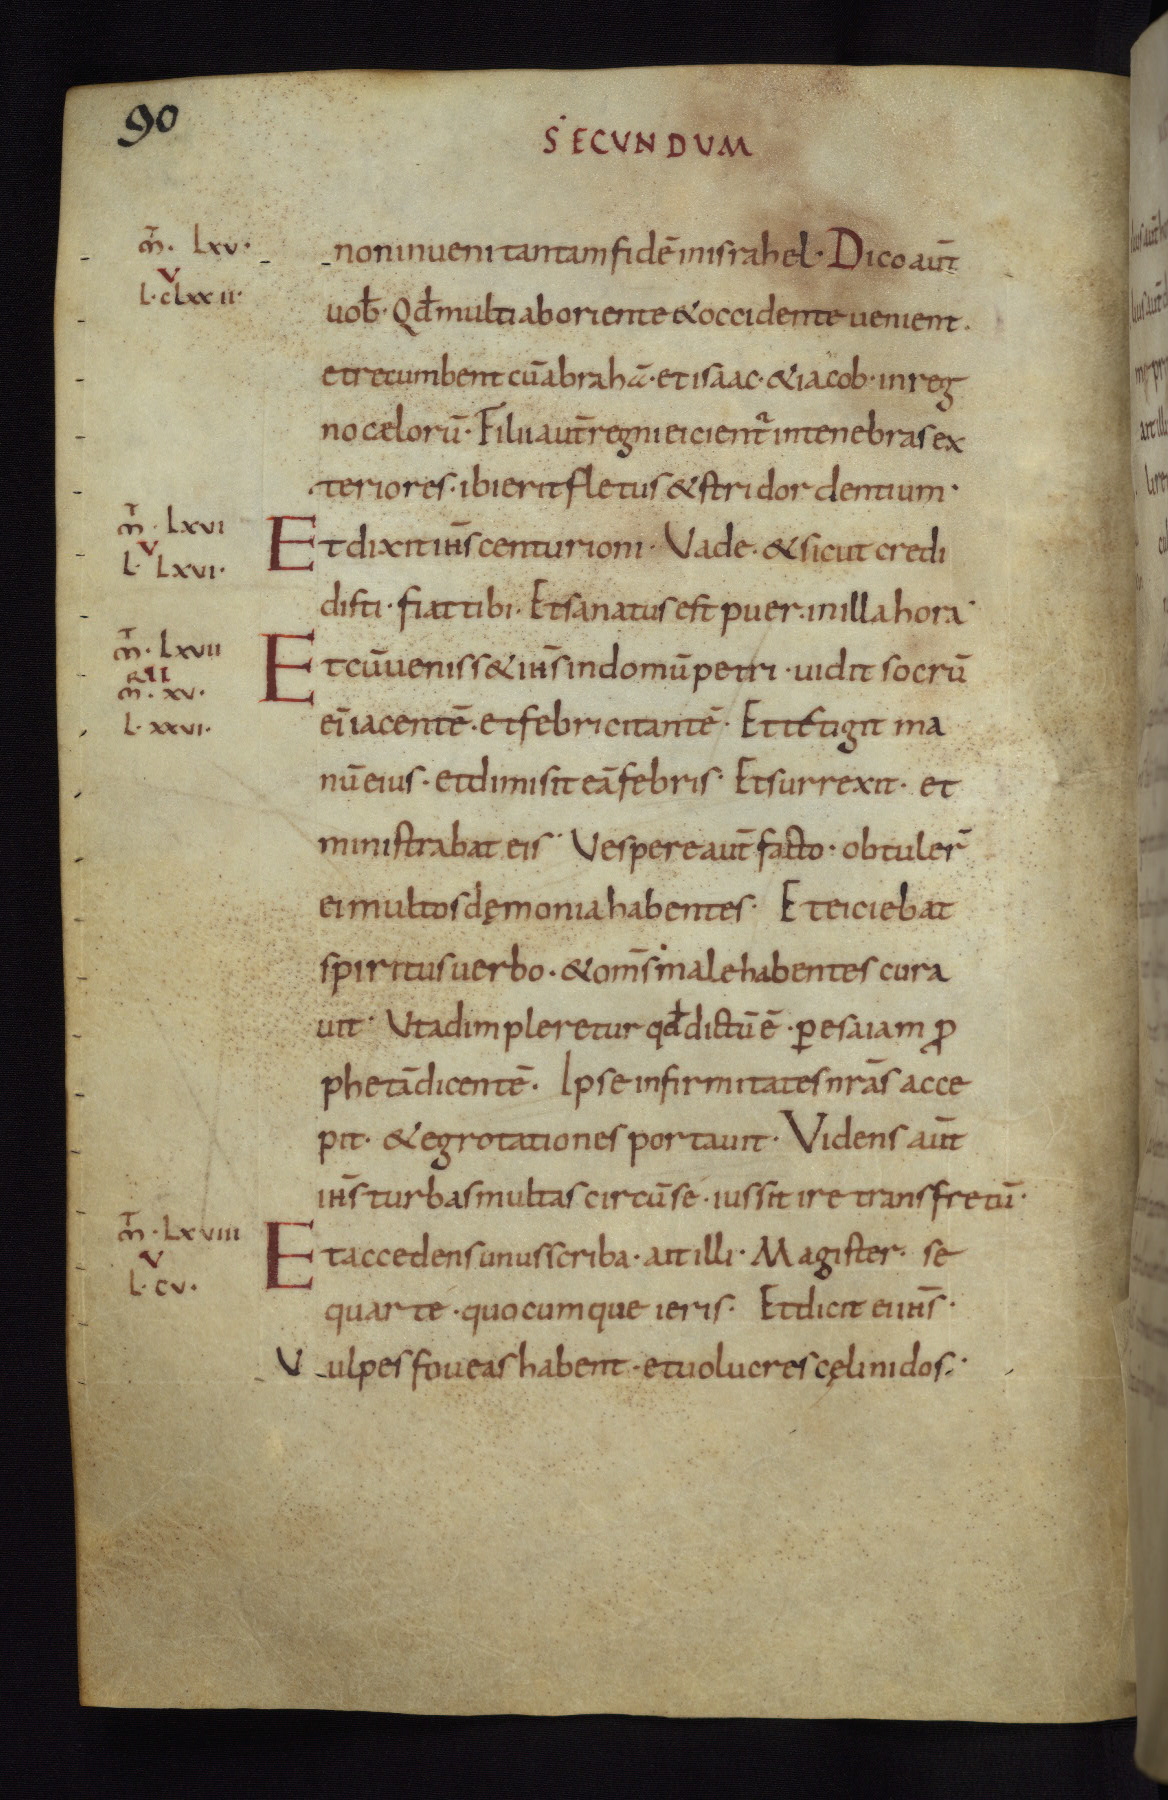 90
SECUNDUM
m̅. Lxv.
v
L. cLxxii.
non inveni tantam fidē in israhel. Dico aūt
uob̄. Qd̄ multi ab oriente & occidente uenient.
et recumbent cū abrahā. et isaac. & iacob. in reg
no cælorū. Filii aūt regni eicientᷣ in tenebras ex
teriores. ibi erit fletus & stridor dentium.
m̅. Lxvi
v
L. Lxvi.
Et dixit ih̄s centurioni. Vade. & sicut credi
disti. fiat tibi. Et sanatus est puer. in illa hora
m̅. Lxvii
R II
m̅. xv.
L. xxvi.
Et cūueniss& ih̄s in domū petri. uidit socrū
ei̅ iacentē. et febricitantē. Et tetigit ma
nū eius. et dimisit eā febris. Et surrexit. et
ministrabat eis. Vespere aūt facto. obtuler̄
ei multos dęmonia habentes. Et eiciebat
spiritus uerbo. & om̄s male habentes cura
uit. Vt adimpleretur qd̄ dictū ē. ꝑ esaiam ꝓ
phetā dicentē. Ipse infirmitates nr̄as acce
pit. & egrotationes portauit. Videns aūt
ih̄s turbas multas circū se. iussit ire trans fretū.
m̅. Lxviii
v
L. cv.
Et accedens unus scriba. ait illi. Magister. se
quar te. quocumque ieris. Et dicit ei ih̄s.
Vulpes foueas habent. et uolucres cęli nidos.